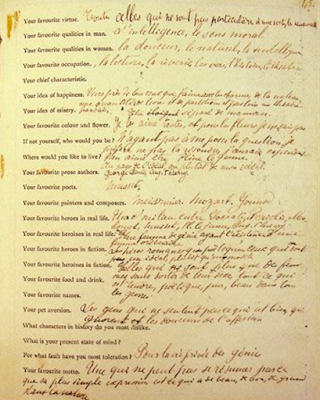 Your favourite virtue. celles qui ne sont pas particulière à une secte,
Your favourite qualities in man. L'intelligence, le sens moral.
Your favourite qualities in woman. la douceur, le naturel,
Your favourite occupation, la lecture, la rêverie, les vers, l'histoire, le théâtre
Your chief characteristic.
Your idea of happiness.
Your idea of misery. Être séparé de maman.
Your favourite colour and flower. Je les aime toutes, et pour les fleurs, je ne sais pas
If not yourself, who would you be? N'ayant pas à me poser la question, je
préfère ne pas la résoudre. J'aurais cependant
Where would you like to live? bien aimé être Pline le Jeune.
Your favourite prose authors. George Sand, Aug. Thierry
Your favourite poets. Musset.
Your favourite painters and composers. Meissonier Mozart, Gounod
Your favourite heroes in real life. Un milieu entre Socrate, Périclès,
Musset, Pline le Jeune, Aug. Thierry
Your favourite heroines in real life. Une femme de génie ayant l'existence d'une
femme ordinaire
Your favourite heroes in fiction. Les héros romanesques poétiques, ceux qui sont
un idéal plutôt qu'un modèle
Your favourite heroines in fiction. Celles qui sont plus que des femmes
sans sortir de leur sexe, tout ce qui
Your favourite food and drink. est tendre, poétique, pur, beau dans tous
Your favourite names. les genres.
Your pet aversion. Les gens qui ne sentent pas ce qui est bien, qui
ignorent les douceurs de l'affection
What characters in history do you most dislike.
What is your present state of mind?
For what fault have you most toleration? Pour la vie privée des génies
Your favourite motto. Une qui ne peut pas se résumer parce
que sa plus simple expression est ce qui a de beau, de bon, de grand
dans la nature